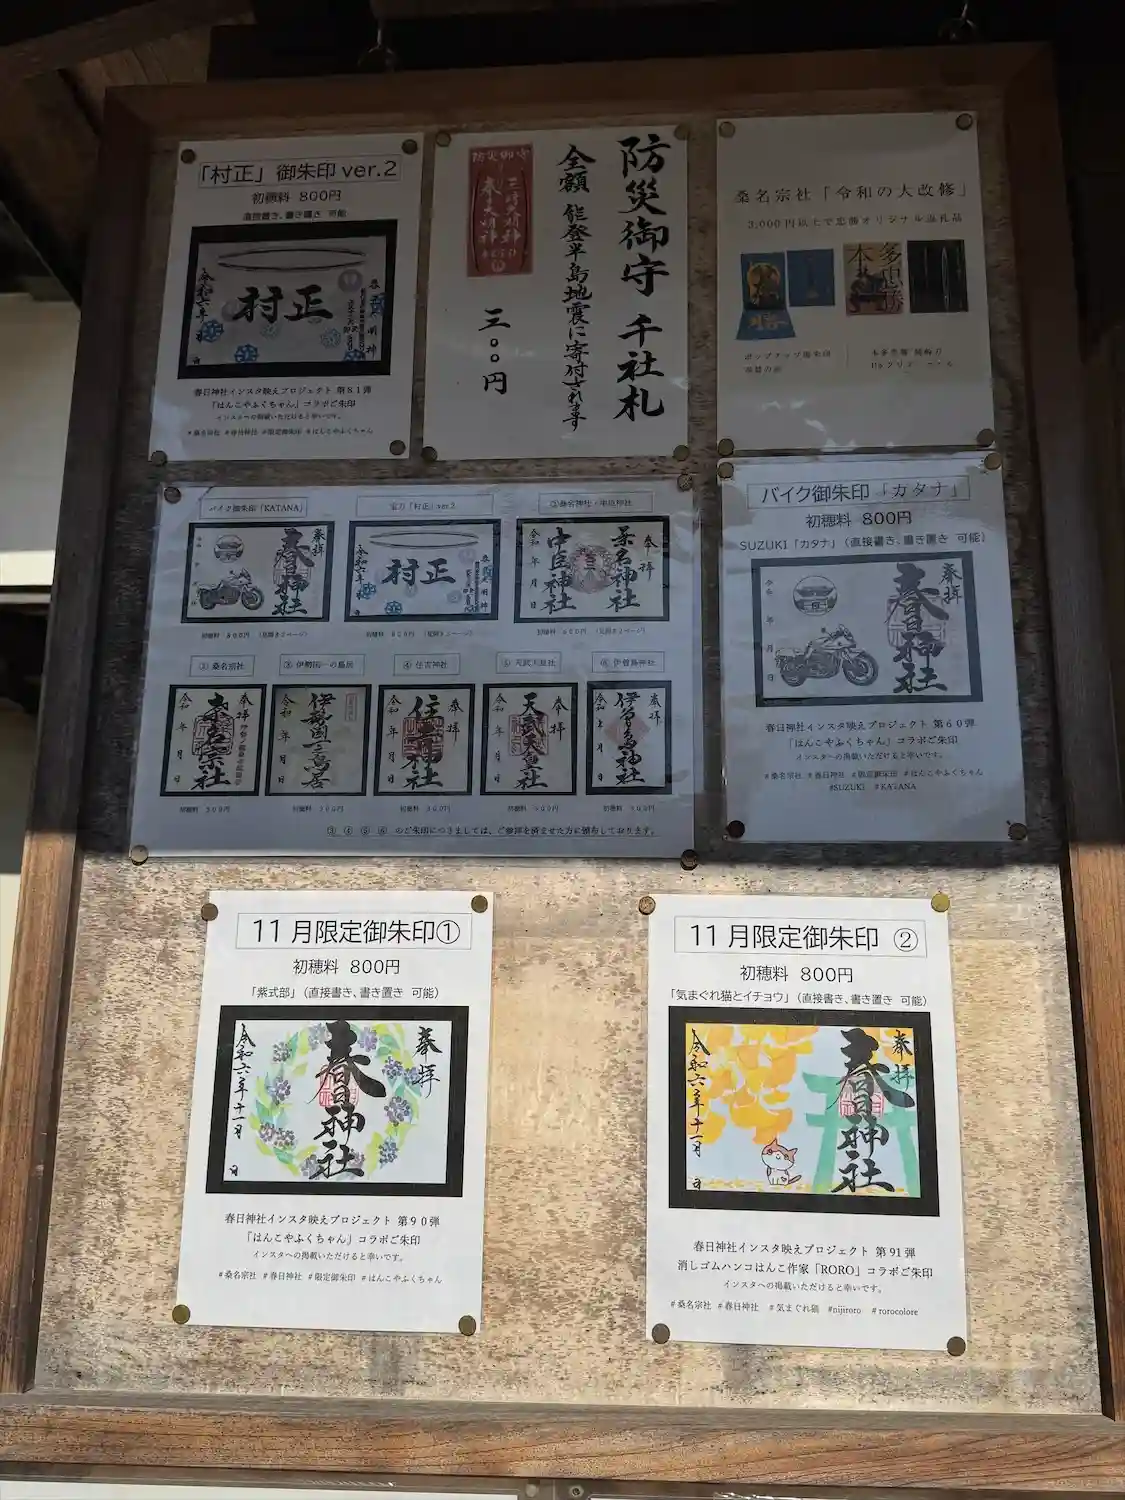 「村正」御朱印 ver.2
初穂料 800円
直接書き、書き置き 可能
奉拝
村正
令和六年
春日神社インスタ映えプロジェクト 第81弾
「はんこやふくちゃん」コラボご朱印
インスタへの掲載いただけると幸いです。
#桑名宗社 #春日神社 #限定御朱印 #はんこやふくちゃん
防災御守 千社札
全額 能登半島地震に寄付されます
三〇〇円
防災御守
春日大明神
桑名宗社「令和の大改修」
3,000円以上で忠勝オリジナル返礼品
本多忠勝
バイク御朱印「KATANA」
宝刀「村正」ver.2
①桑名神社・中臣神社
奉拝
春日神社
村正
奉拝
桑名神社
中臣神社
令和 年 月 日
初穂料 800円 (見開き2ページ)
初穂料 800円 (見開き2ページ)
②桑名宗社
③伊勢国一の鳥居
④住吉神社
⑤天武天皇社
⑥伊曽島神社
奉拝
桑名宗社
令和 年 月 日
伊勢国一之鳥居
令和 年 月 日
奉拝
住吉神社
令和 年 月 日
奉拝
天武天皇社
令和 年 月 日
奉拝
伊曽島神社
令和 年 月 日
③ ④ ⑤ ⑥ のご朱印につきましては、ご参拝を済ませた方に頒布しております。
バイク御朱印「カタナ」
初穂料 800円
SUZUKI「カタナ」(直接書き、書き置き 可能)
奉拝
春日神社
令和 年 月 日
春日神社インスタ映えプロジェクト 第60弾
「はんこやふくちゃん」コラボご朱印
インスタへの掲載いただけると幸いです。
#桑名宗社 #春日神社 #限定御朱印 #はんこやふくちゃん
#SUZUKI #KATANA
11月限定御朱印①
初穂料 800円
「紫式部」(直接書き、書き置き 可能)
奉拝
春日神社
令和六年十一月 日
春日神社インスタ映えプロジェクト 第90弾
「はんこやふくちゃん」コラボご朱印
インスタへの掲載いただけると幸いです。
#桑名宗社 #春日神社 #限定御朱印 #はんこやふくちゃん
11月限定御朱印 ②
初穂料 800円
「気まぐれ猫とイチョウ」(直接書き、書き置き 可能)
奉拝
春日神社
令和六年十一月 日
春日神社インスタ映えプロジェクト 第91弾
消しゴムハンコはんこ作家「RORO」コラボご朱印
インスタへの掲載いただけると幸いです。
#桑名宗社 #春日神社 #気まぐれ猫 #nijiroro #rorocolore